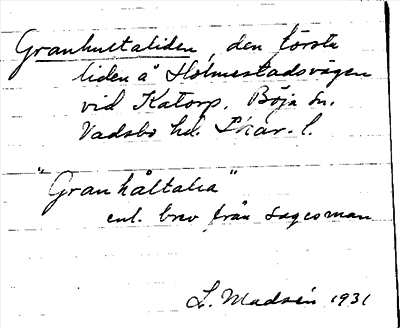 Granhultaliden, den första
liden å Holmestadsvägen
vid Katorp. Böja sn.
Vadsbo hd. Skar. l.
"Granhåltalia"
enl. brev från sagesman
L. Madsén 1931